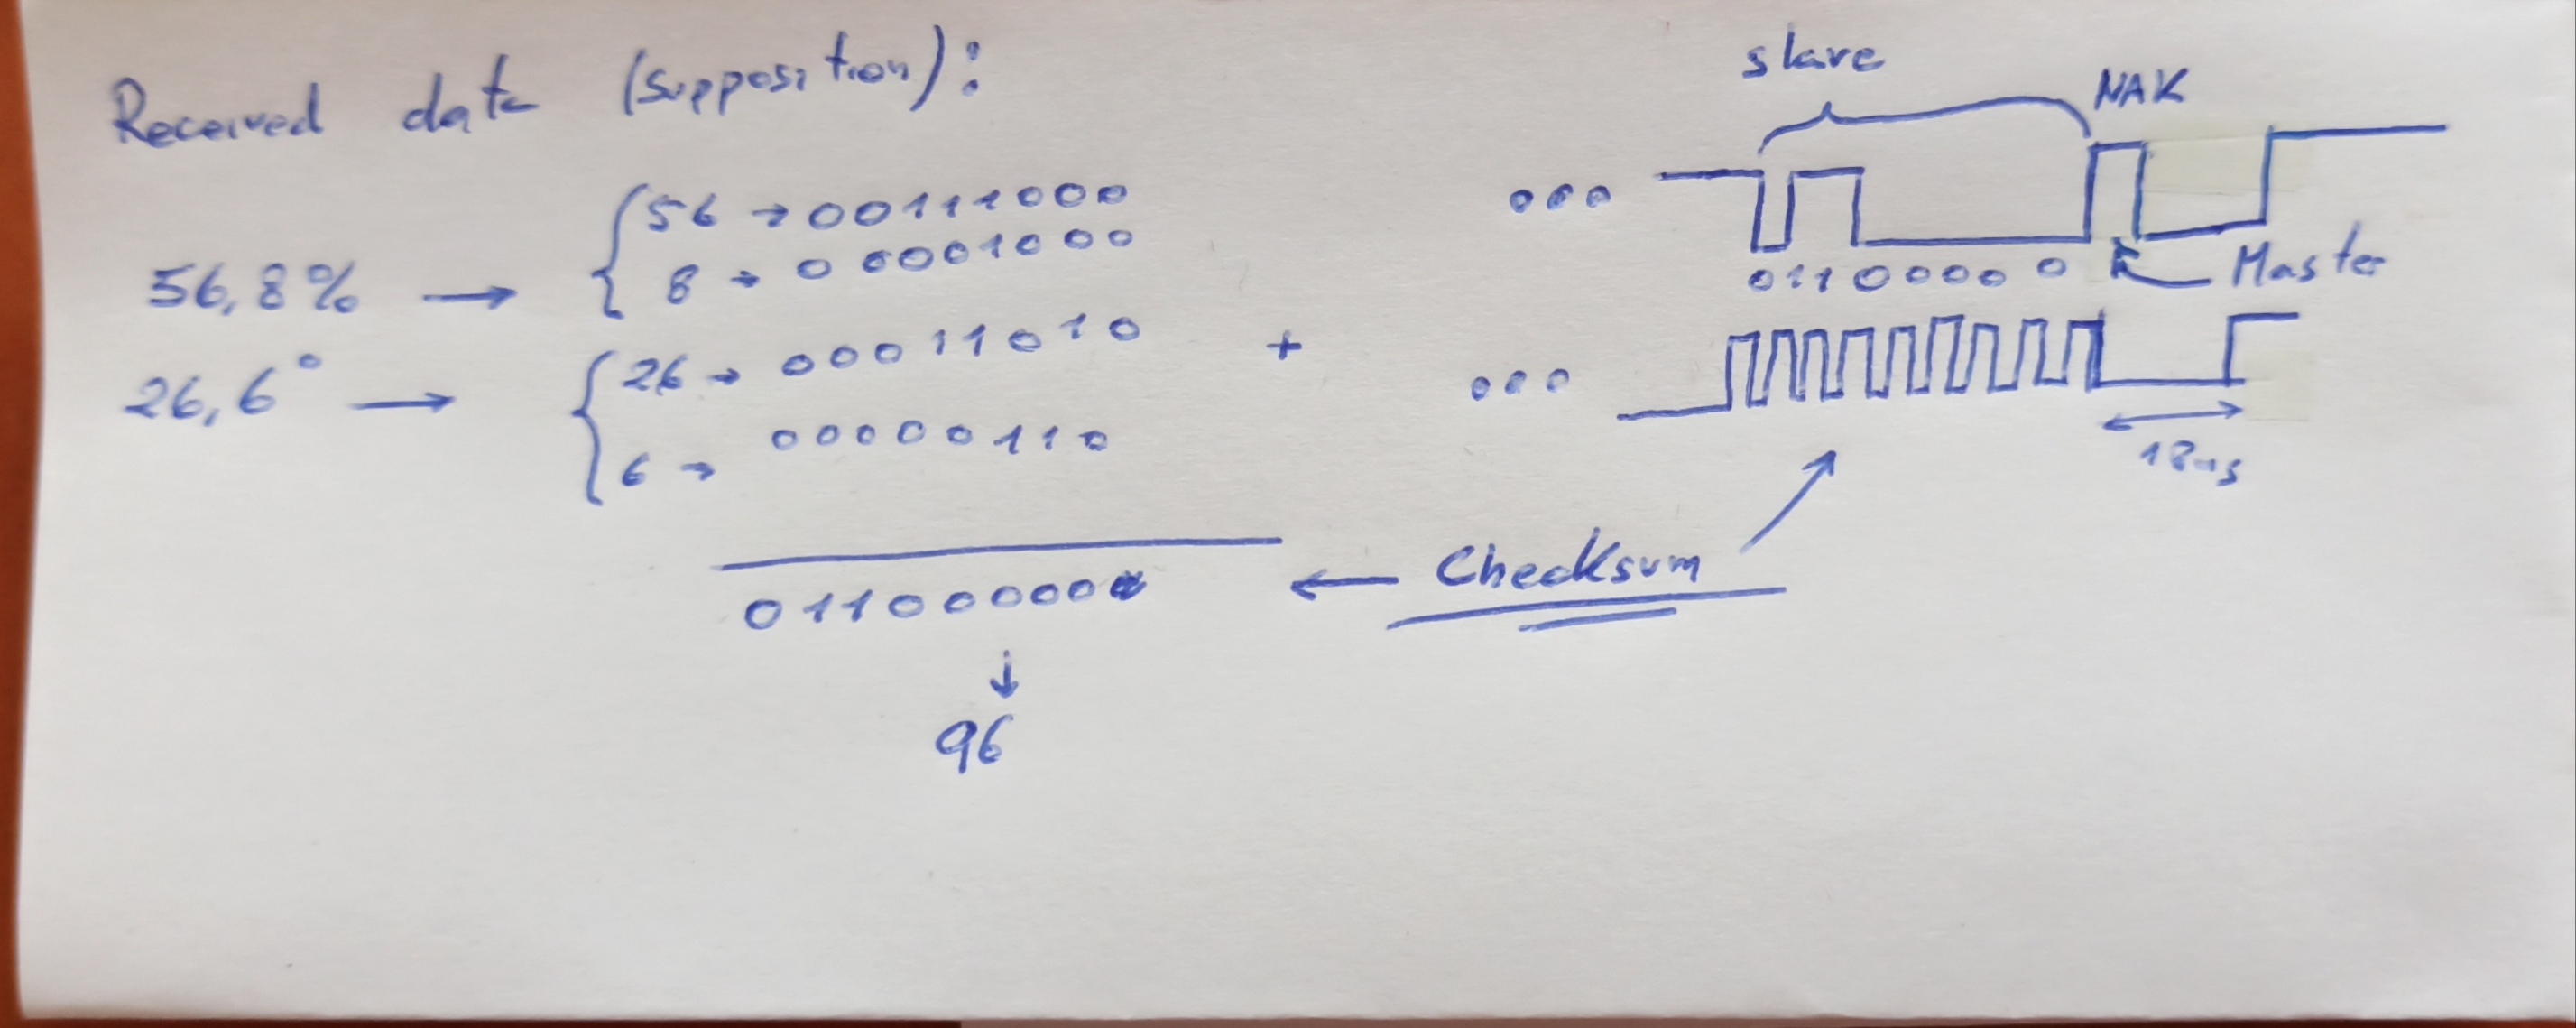 Received data (supposition):
56,8% → { 56 → 00111000
8 → 00001000
26,6° → { 26 → 00011010
6 → 00000110
+
011000000
↓
96
← Checksum
slave
NAK
ooo
01100000
Master
ooo
18ms